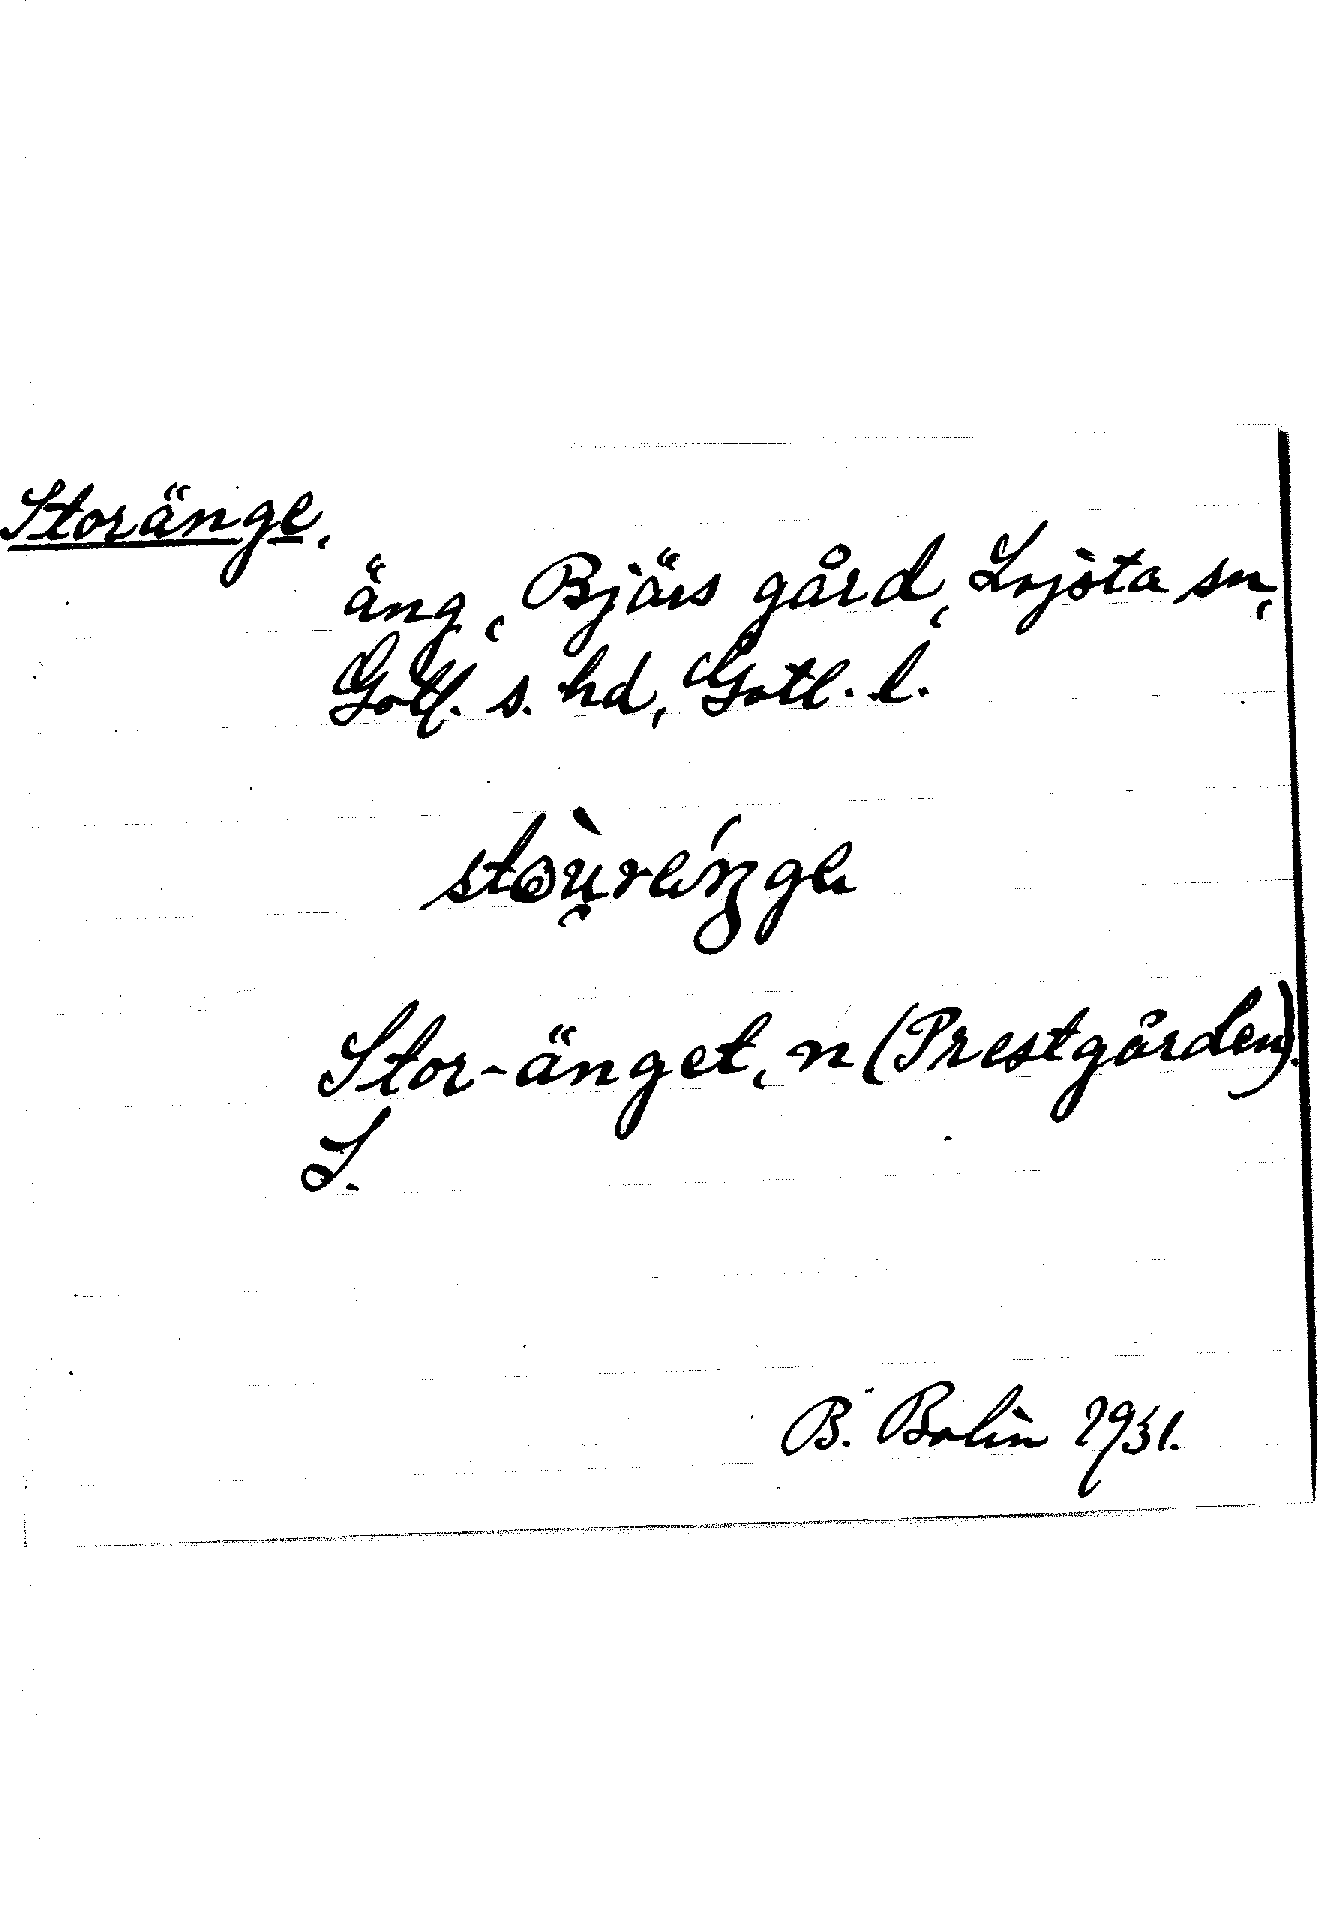 Storänge,
äng, Bjärs gård, Lojsta sn,
Gotl. s. hd, Gotl. l.
Stor-änget, n (Prestgården).
L.
B. Bolin 1931.